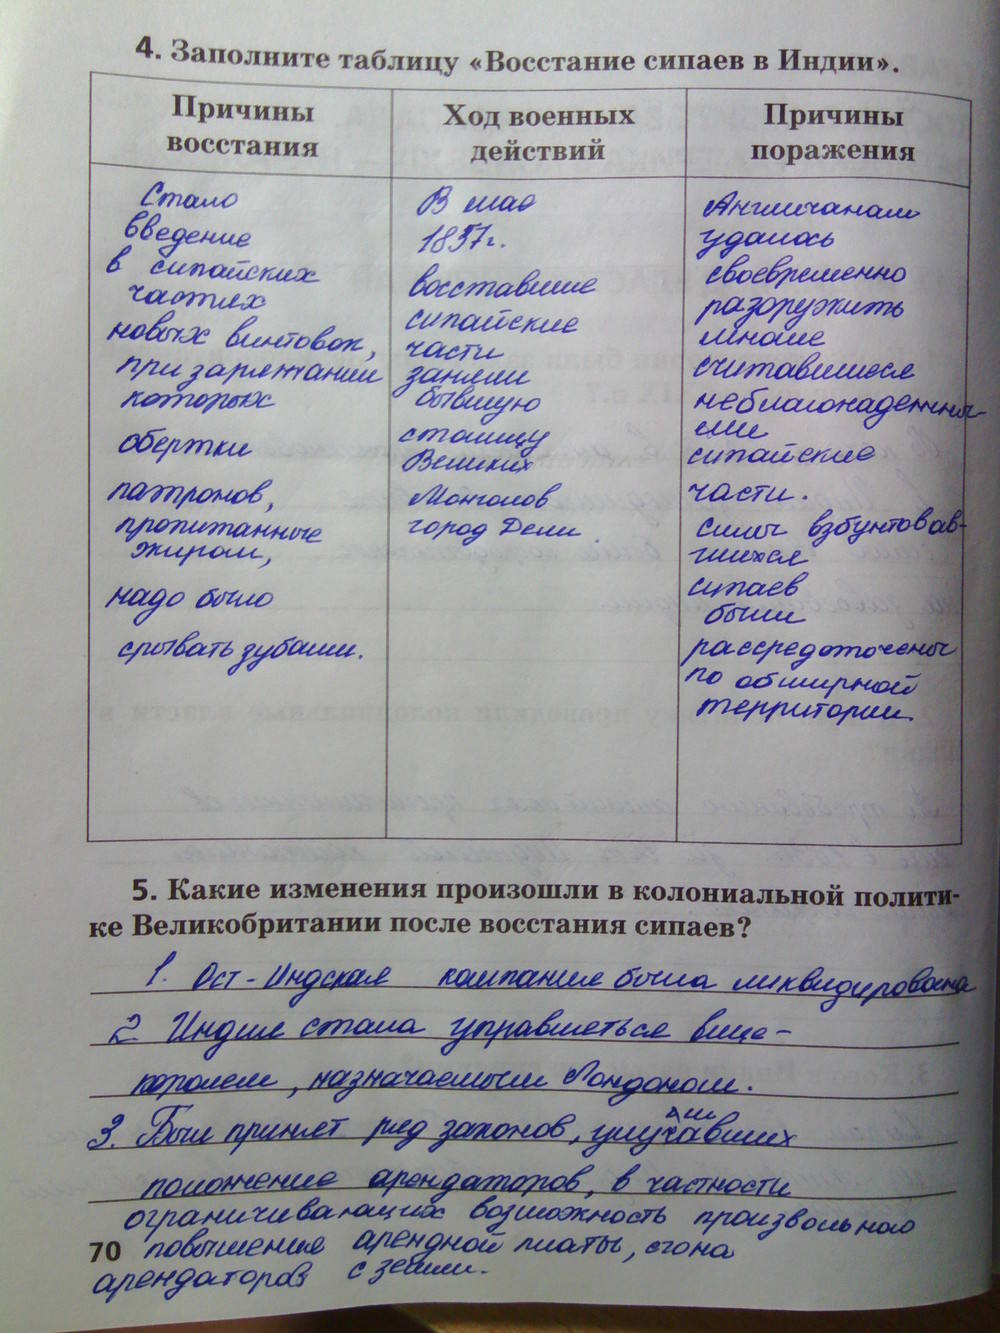 4. Заполните таблицу «Восстание сипаев в Индии».
Причины
восстания
Ход военных
действий
Причины
поражения
Стало
введение
в сипайских
частях
новых винтовок,
при заряжании
которых
обертки
патронов,
пропитанные
жиром,
надо было
срывать зубами.
В мае
1857г.
восставшие
сипайские
части
заняли
бывшую
столицу
Великих
Монголов
город Дели.
Англичанам
удалось
своевременно
разоружить
многие
считавшиеся
неблагонадежны-
ми
сипайские
части.
силы взбунтовав-
шихся
сипаев
были
рассредоточены
по обширной
территории.
5. Какие изменения произошли в колониальной полити-
ке Великобритании после восстания сипаев?
1. Ост-Индская компания была ликвидирована
2. Индия стала управляться вице-
королем, назначаемым Лондоном.
3. Был принят ряд законов, улучшавших
положение арендаторов, в частности
ограничивающих возможность произвольного
70 повышения арендной платы, сгона
арендаторов с земли.